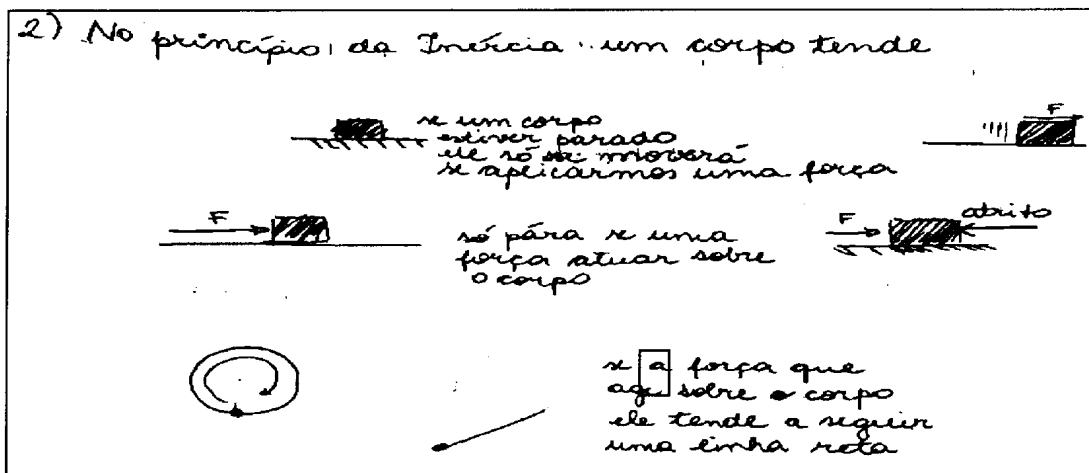 2) No princípio, da Inércia um corpo tende
se um corpo
estiver parado
ele só se moverá
se aplicarmos uma força
F
F
só pára se uma
força atuar sobre
o corpo
F
atrito
se a força que
age sobre o corpo
ele tende a seguir
uma linha reta